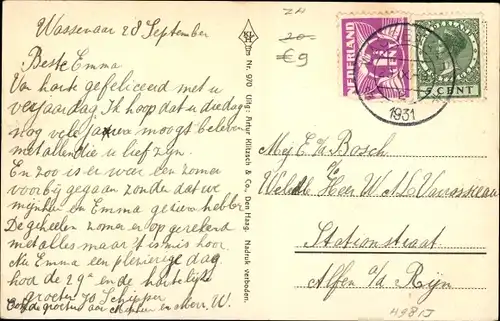 Wassenaar 28 September
Beste Emma
Van harte gefeliciteerd met u
verjaardag Ik hoop dat u die dag
nog vele jaren moogt beleven
met allen die u lief zijn.
En zoo is er weer een zomer
voorbij gegaan zonder dat we
mijnheer en Emma gezien hebben
De geheelen zomer op gerekend
met alles maar 't is mis hoor.
Nu Emma een plezierige dag
hoor de 29e en de hartelijke
groeten Jo Schipper
en Mevr. W.
Dr. Nr. 970 Uitg: Artur Klitzsch & Co., Den Haag. Nadruk verboden.
ZH
20-
€9
NEDERLAND
5 CENT
1931
Mej E. v/d Bosch.
p/a
Weled. Heer W A L Varossieau
Stationstraat
Alfen a/d Rijn